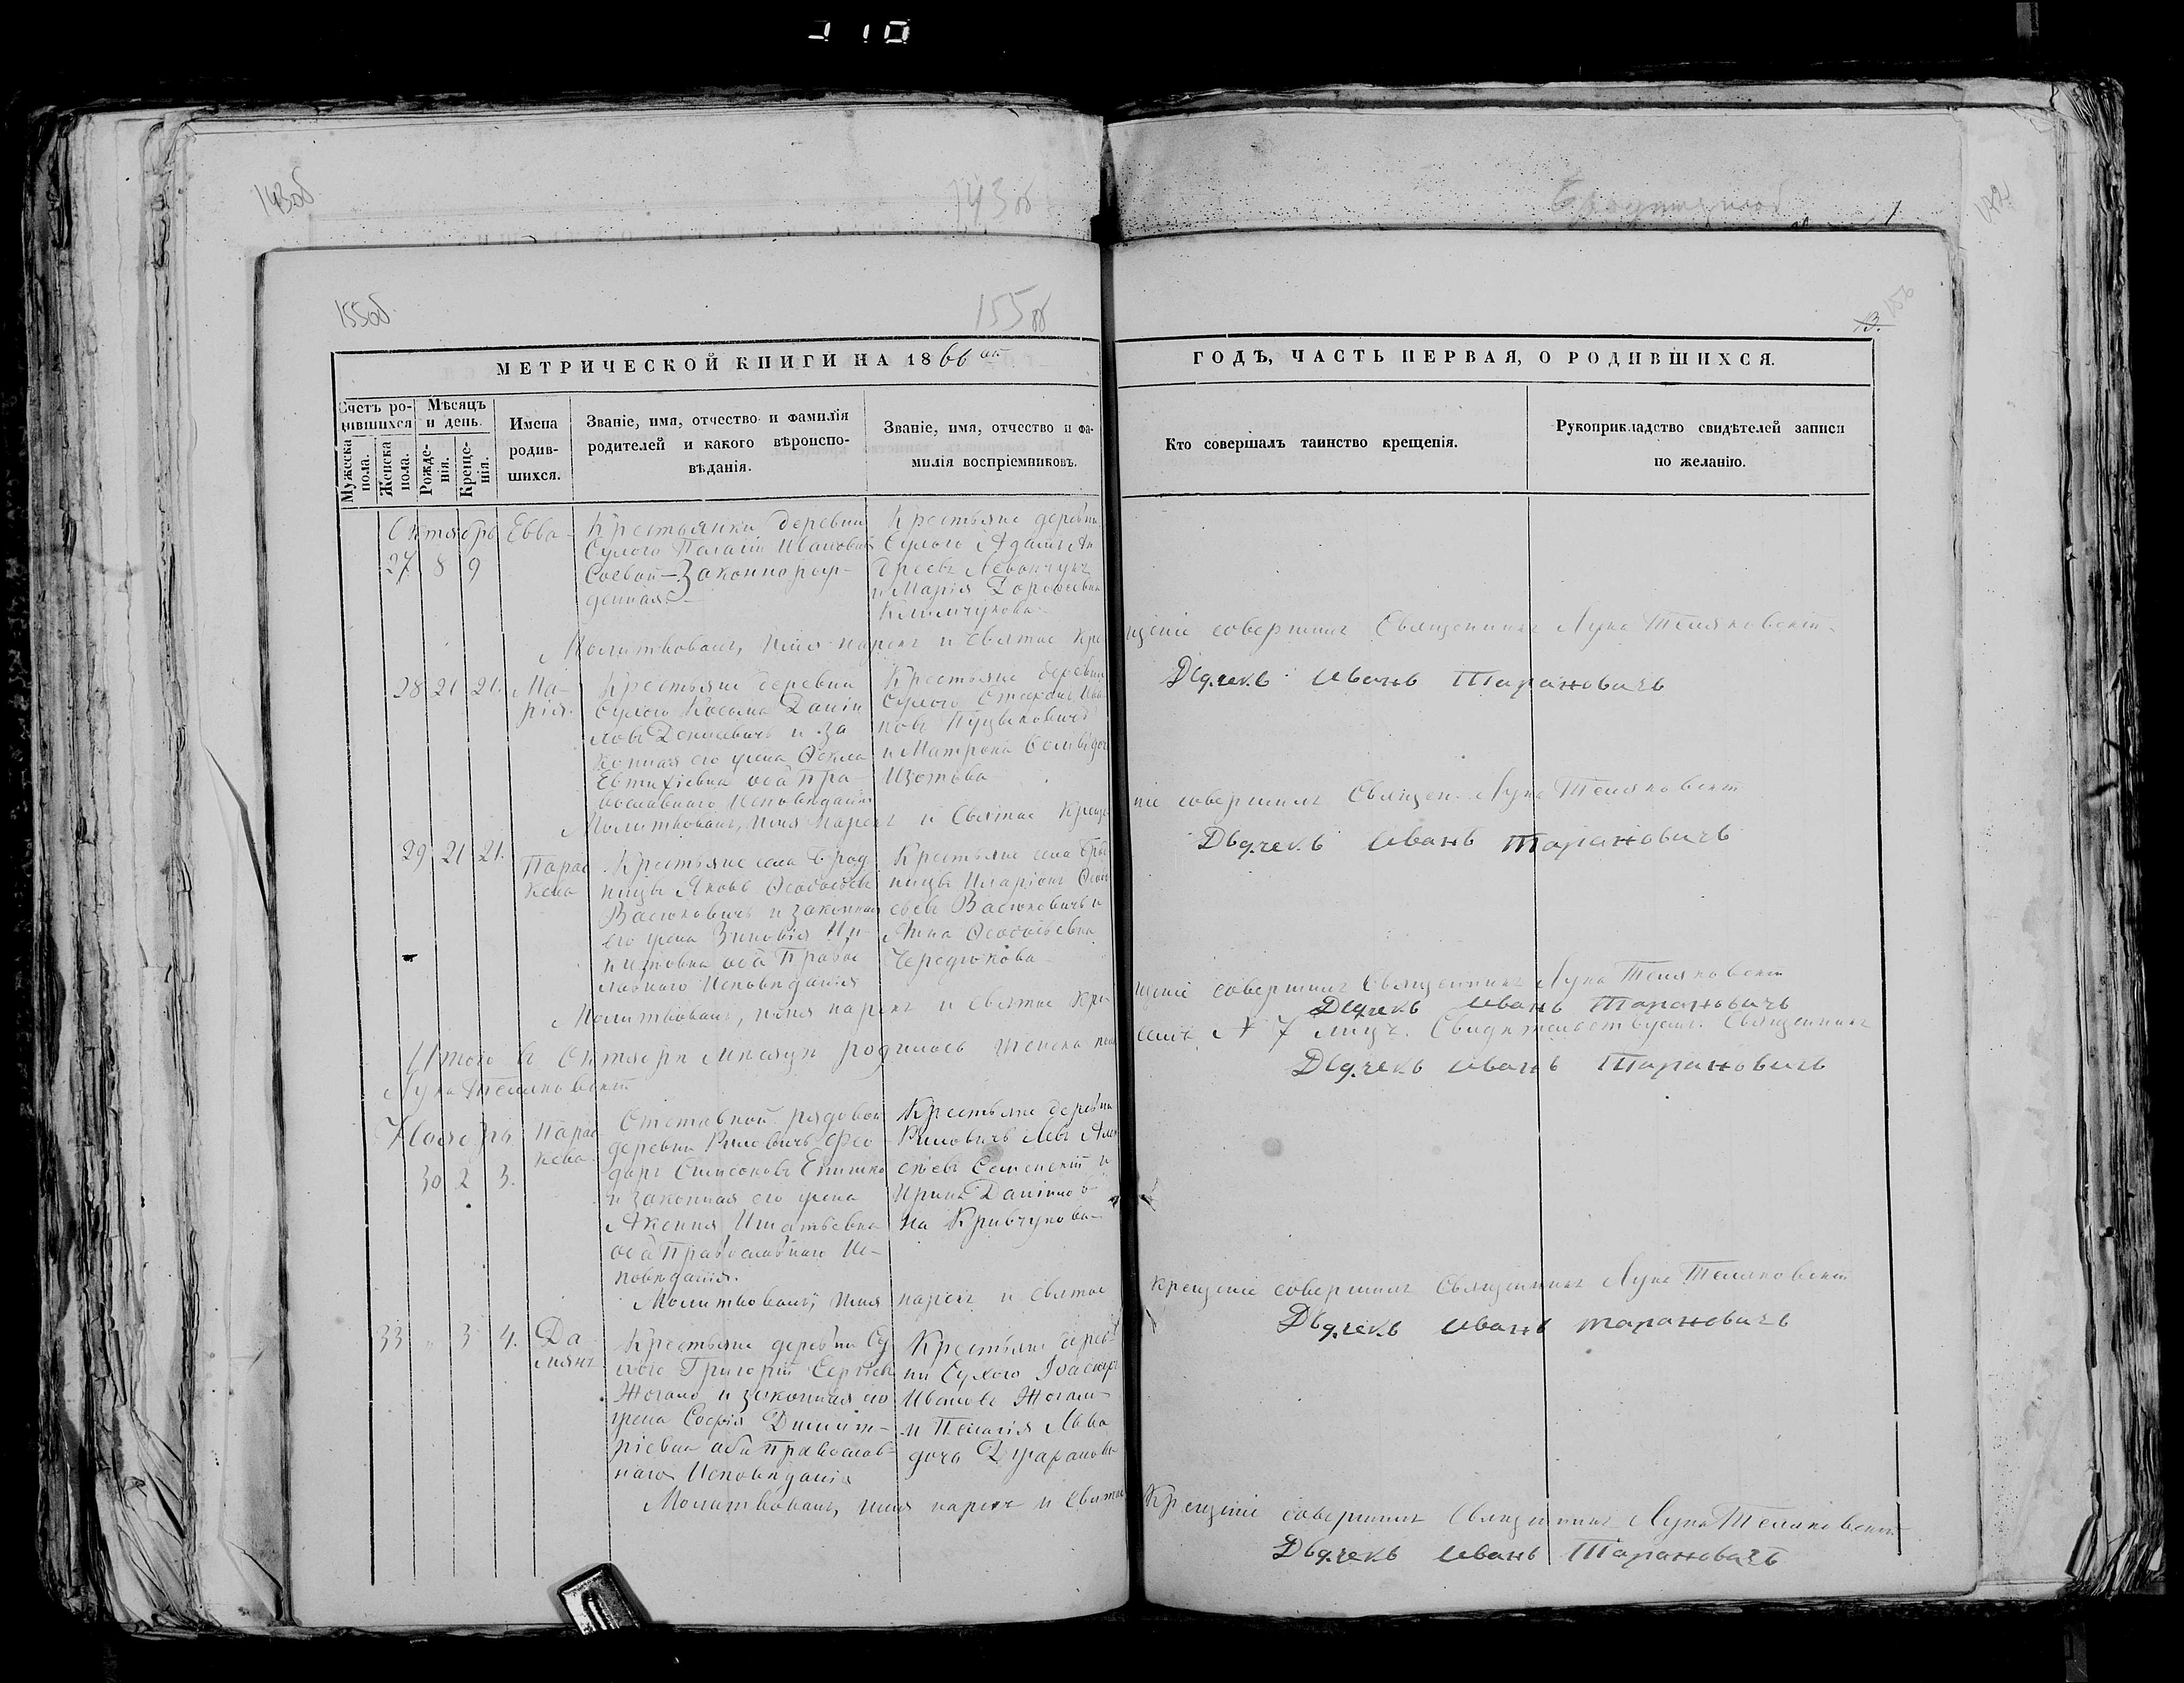 110
143об
143об
1
155об
155об
13.
156
МЕТРИЧЕСКОЙ КНИГИ НА 1866 ой
ГОДЪ, ЧАСТЬ ПЕРВАЯ, О РОДИВШИХСЯ.
Счетъ ро-
дившихся
Мужеска
пола.
Женска
пола.
Мѣсяцъ
и день.
Рожде-
нія.
Креще-
нія.
Имена
родив-
шихся.
Званіе, имя, отчество и фамилія
родителей и какого вѣроиспо-
вѣданія.
Званіе, имя, отчество и фа-
милія воспріемниковъ.
Кто совершалъ таинство крещенія.
Рукоприкладство свидѣтелей записи
по желанію.
Октябрь
27 8 9
Евва
Крестьянки деревни
Сухого Пелагіи Ивановой
Соевой – Законнорож-
денная.
Крестьяне деревни
Сухого Адамъ Ан
дреевъ Левончукъ
и Марія Дорофеевна
Климчукова
Молитвовалъ, имя нарекъ и Святое Кре
щеніе совершилъ Священникъ Лука Теляковскій
Дьячекъ Иванъ Тарановичъ
28 21 21.
Ма-
рія.
Крестьяне деревни
Сухого Косьма Даніи
ловъ Денисевичъ и за
конная его жена Ѳекла
Евтихіевна оба пра-
вославнаго Исповѣданія
Крестьяне деревни
Сухого Стефанъ Ива
новъ Пуцыковичъ
и Матрона
Изотова
Молитвовалъ, имя нарекъ и Святое Креще
ніе совершилъ Священ. Лука Теляковскій
Дьячекъ Иванъ Тарановичъ
29 21 21.
Парас
кева
Крестьяне села Брод
ницы Яковъ Ѳеодосіевъ
Васюковичъ и законная
его жена Зиновія Ни-
китовна оба Правос
лавнаго Исповѣданія
Крестьяне села Брод
ницы Иларіонъ Ѳеодо
сіевъ Васюковичъ и
Анна Ѳеодосіевна
Чередюкова
Молитвовалъ, имя нарекъ и Святое Кре
щеніе совершилъ Священникъ Лука Теляковскій
Дьячекъ Иванъ Тарановичъ
Итого въ Октябрѣ мѣсяцѣ родилось женска пола
семь № 7 лицъ. Свидѣтельствуемъ. Священникъ
Лука Теляковскій
Дьячекъ Иванъ Тарановичъ
Ноябрь.
30 2 3.
Парас
кева.
Отставной рядовой
деревни Риловичъ Фео
доръ Симеоновъ Епишко
и законная его жена
Аксенія Игнатьевна
оба Православнаго Ис-
повѣданія.
Крестьяне деревни
Риловичъ Левъ Алек
сѣевъ Семенскій и
Ирина Данилов
на Кривчукова
Молитвовалъ, имя нарекъ и Святое
крещеніе совершилъ Священникъ Лука Теляковскій
Дьячекъ Иванъ Тарановичъ
33 „ 3 4.
Да
міанъ
Крестьяне деревни Су
хого Григорій Сергѣевъ
Жогало и законная его
жена Софія Димит-
ріевна оба Православ-
наго Исповѣданія
Крестьяне дерев
ни Сухого
Ивановъ Жогало
и Пелагія Львова
дочь
Молитвовалъ, имя нарекъ и Святое
Крещеніе совершилъ Священникъ Лука Теляковскій
Дьячекъ Иванъ Тарановичъ